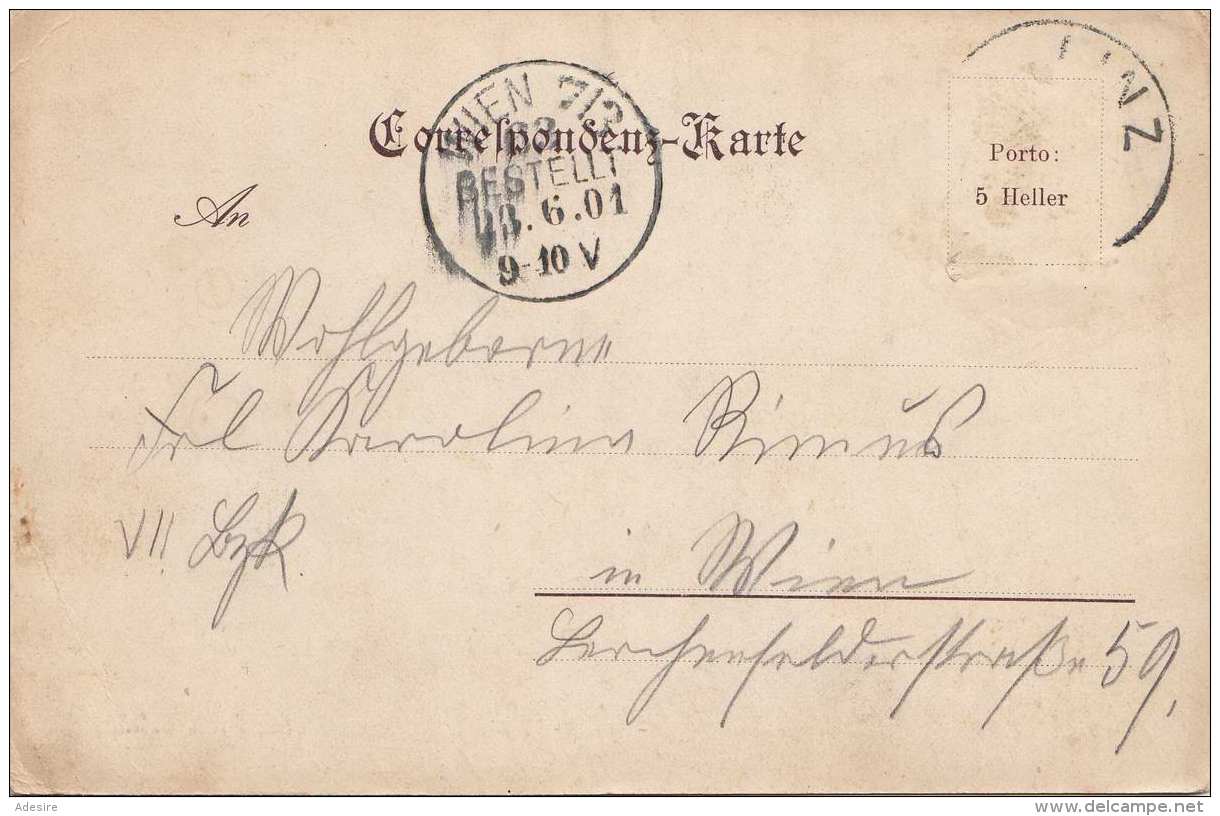 Correspondenz-Karte
WIEN 7/2
BESTELLT
. 6 . 01
9-10 V
LINZ
Porto:
5 Heller
An
Wohlgeborne
Frl Karolina Rimus
VII. Bzk.
in Wien
Lerchenfelderstraße 59,
Adesire
delcampe.net